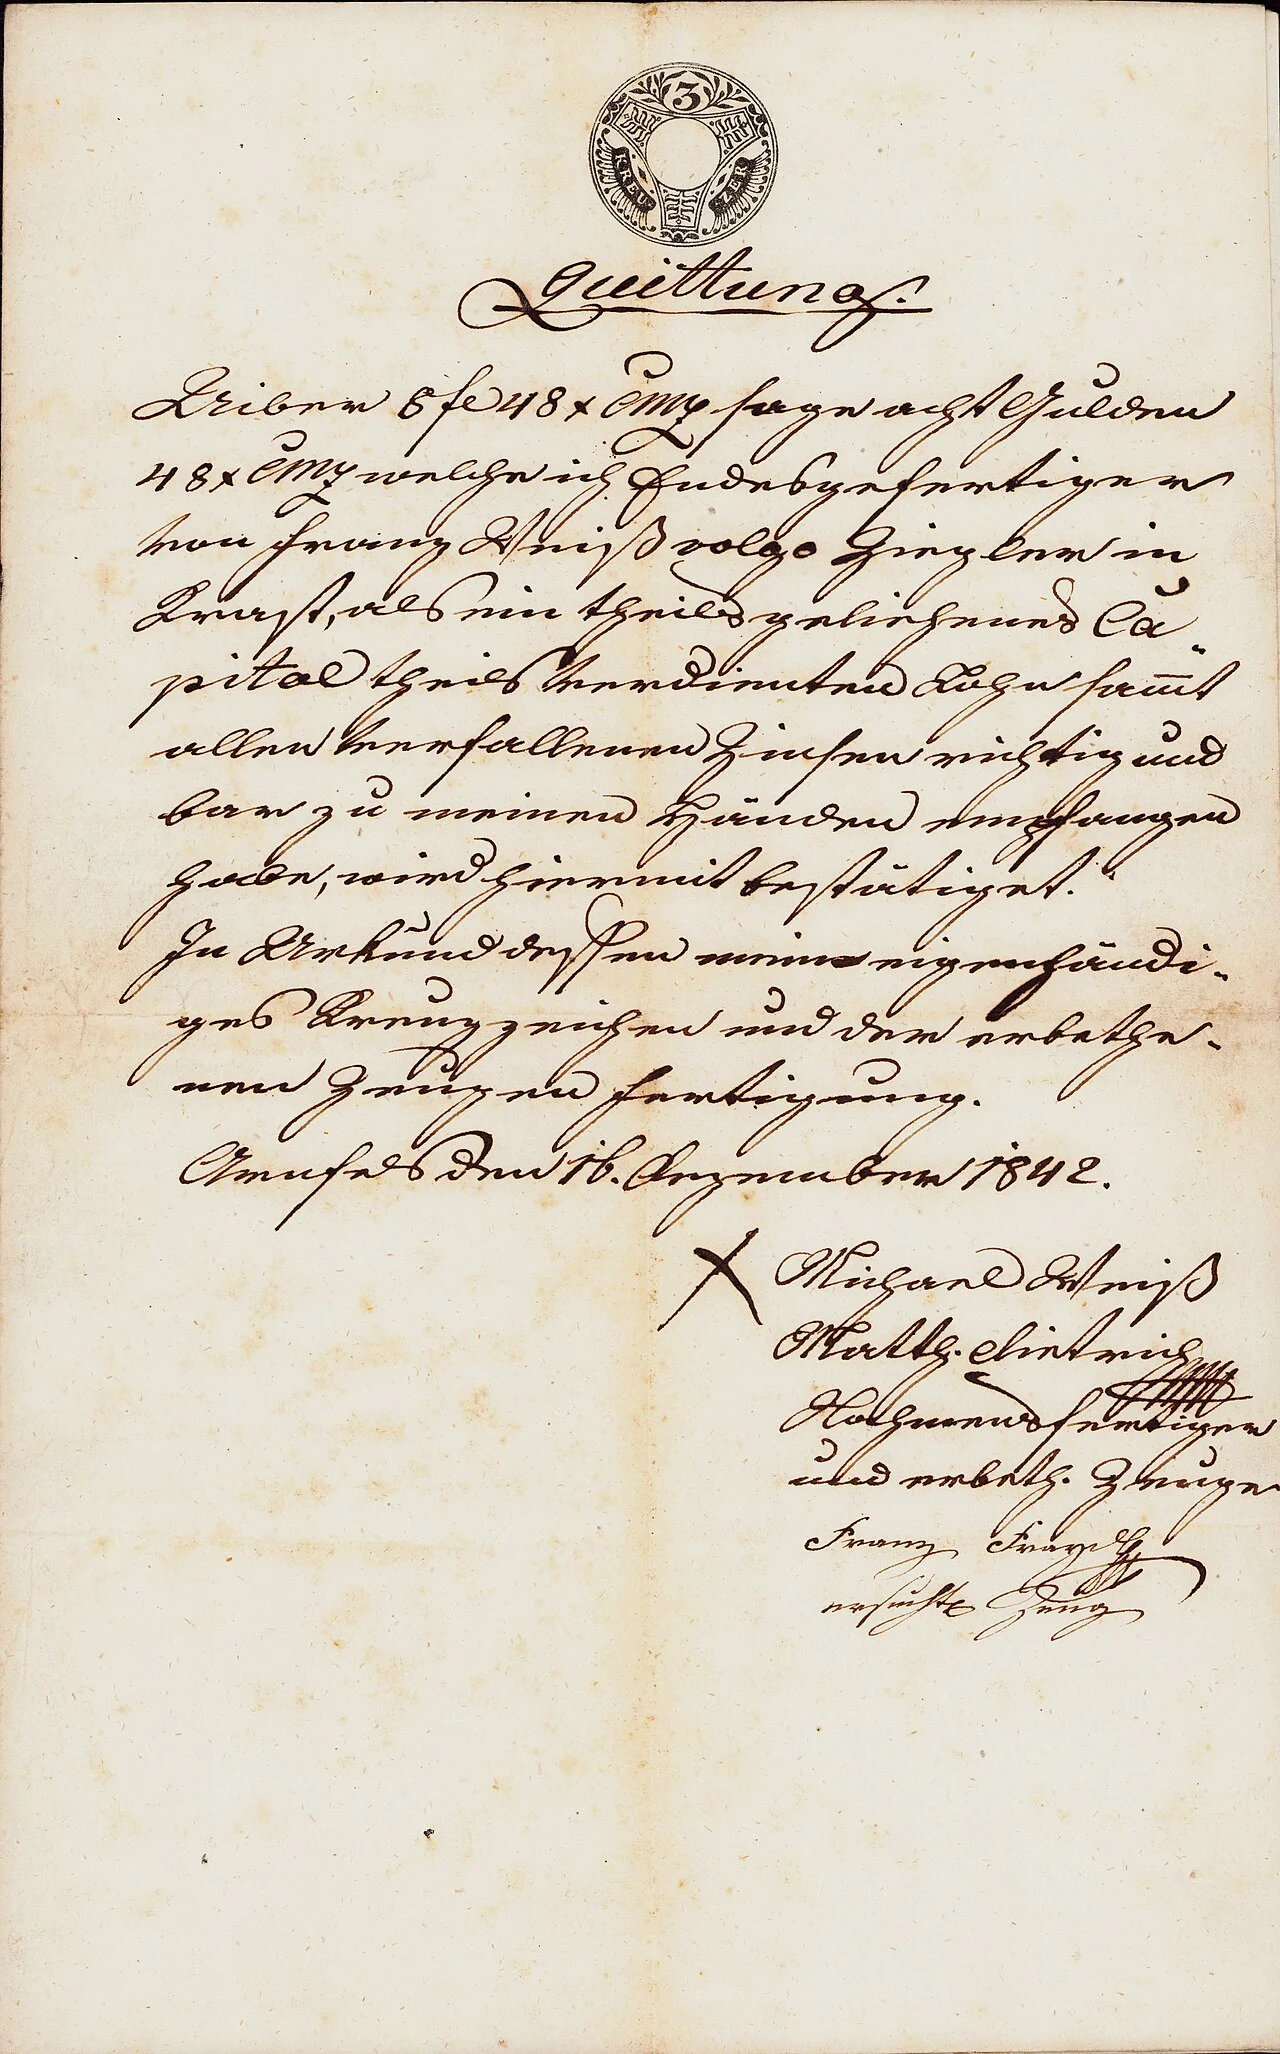 3
KREU ZER
Quittung.
Uiber 8 fl 48 x CMz sage acht Gulden
48 x CMz welche ich Endesgefertiger
von Franz Weiß volgo Ziegler in
Krast, als ein theils geliehenes Ca„
pital theils verdienten Lohn sam̅t
allen verfallenen Zinsen richtig und
bar zu meinen Händen empfangen
habe, wird hiermit bestätiget.
In Urkund dessen meine eigenhändi„
ges Kreuzzeichen und der erbethe„
nen Zeugen Fertigung.
Arnfels den 16. Dezember 1842.
X Michael Weiß
Matth. Dietrich
Nahmensfertiger
und erbeth. Zeuge
Franz
ersuchter Zeug